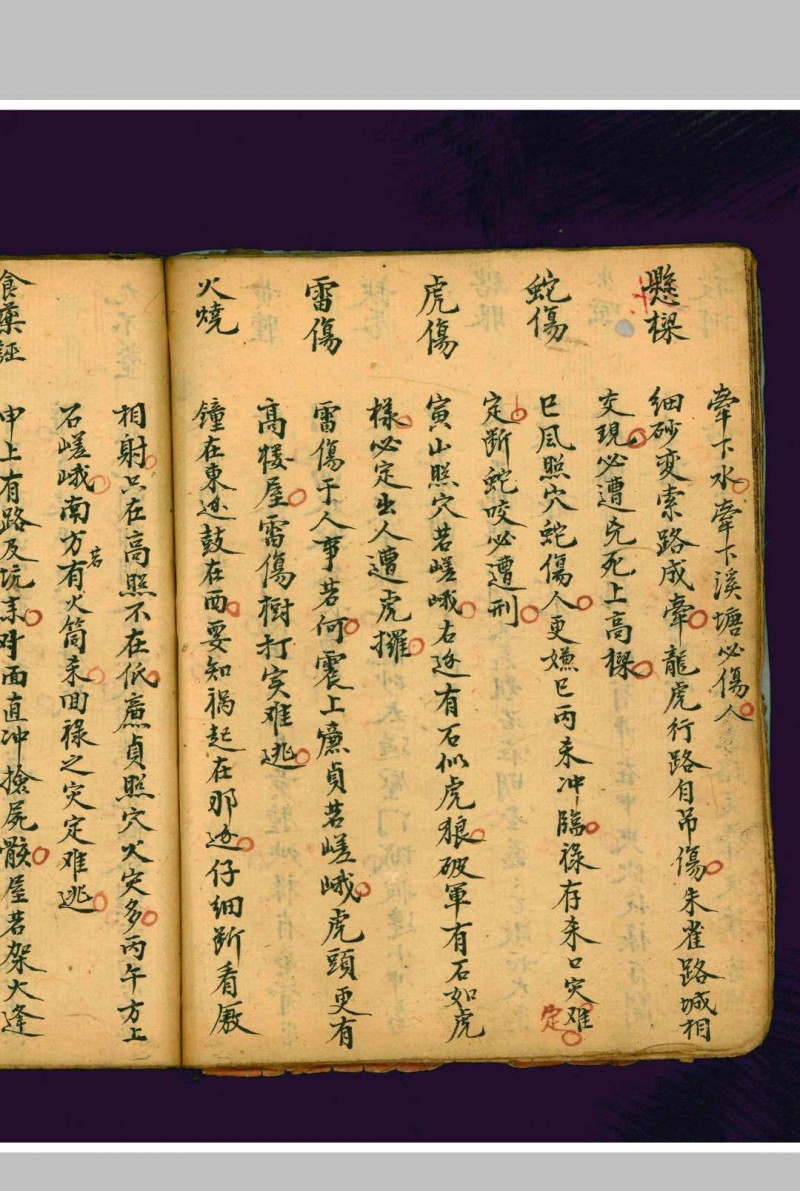 牽下水牽下溪塘必傷人
懸樑
細砂变索路成牽龍虎行路自吊傷朱雀路城相
交現必遭凶死上高樑
蛇傷
巳風照穴蛇傷人更嫌巳丙来冲臨禄存来口灾难
定
定斷蛇咬必遭刑
虎傷
寅山照穴若嵯峨右边有石似虎狼破軍有石如虎
樣必定出人遭虎㩴
雷傷
雷傷于人事若何震上廉貞若嵯峨虎頭更有
高楼屋雷傷樹打灾难逃
火燒
鐘在東边鼓在西要知禍起在那边仔細斷看廒
相射只在高照不在低廉貞照穴火灾多丙午方上
石嵯峨南方若有火筒来回禄之灾定难逃
食藥
申上有路及坑来对面直冲搶屍骸屋若架大逢